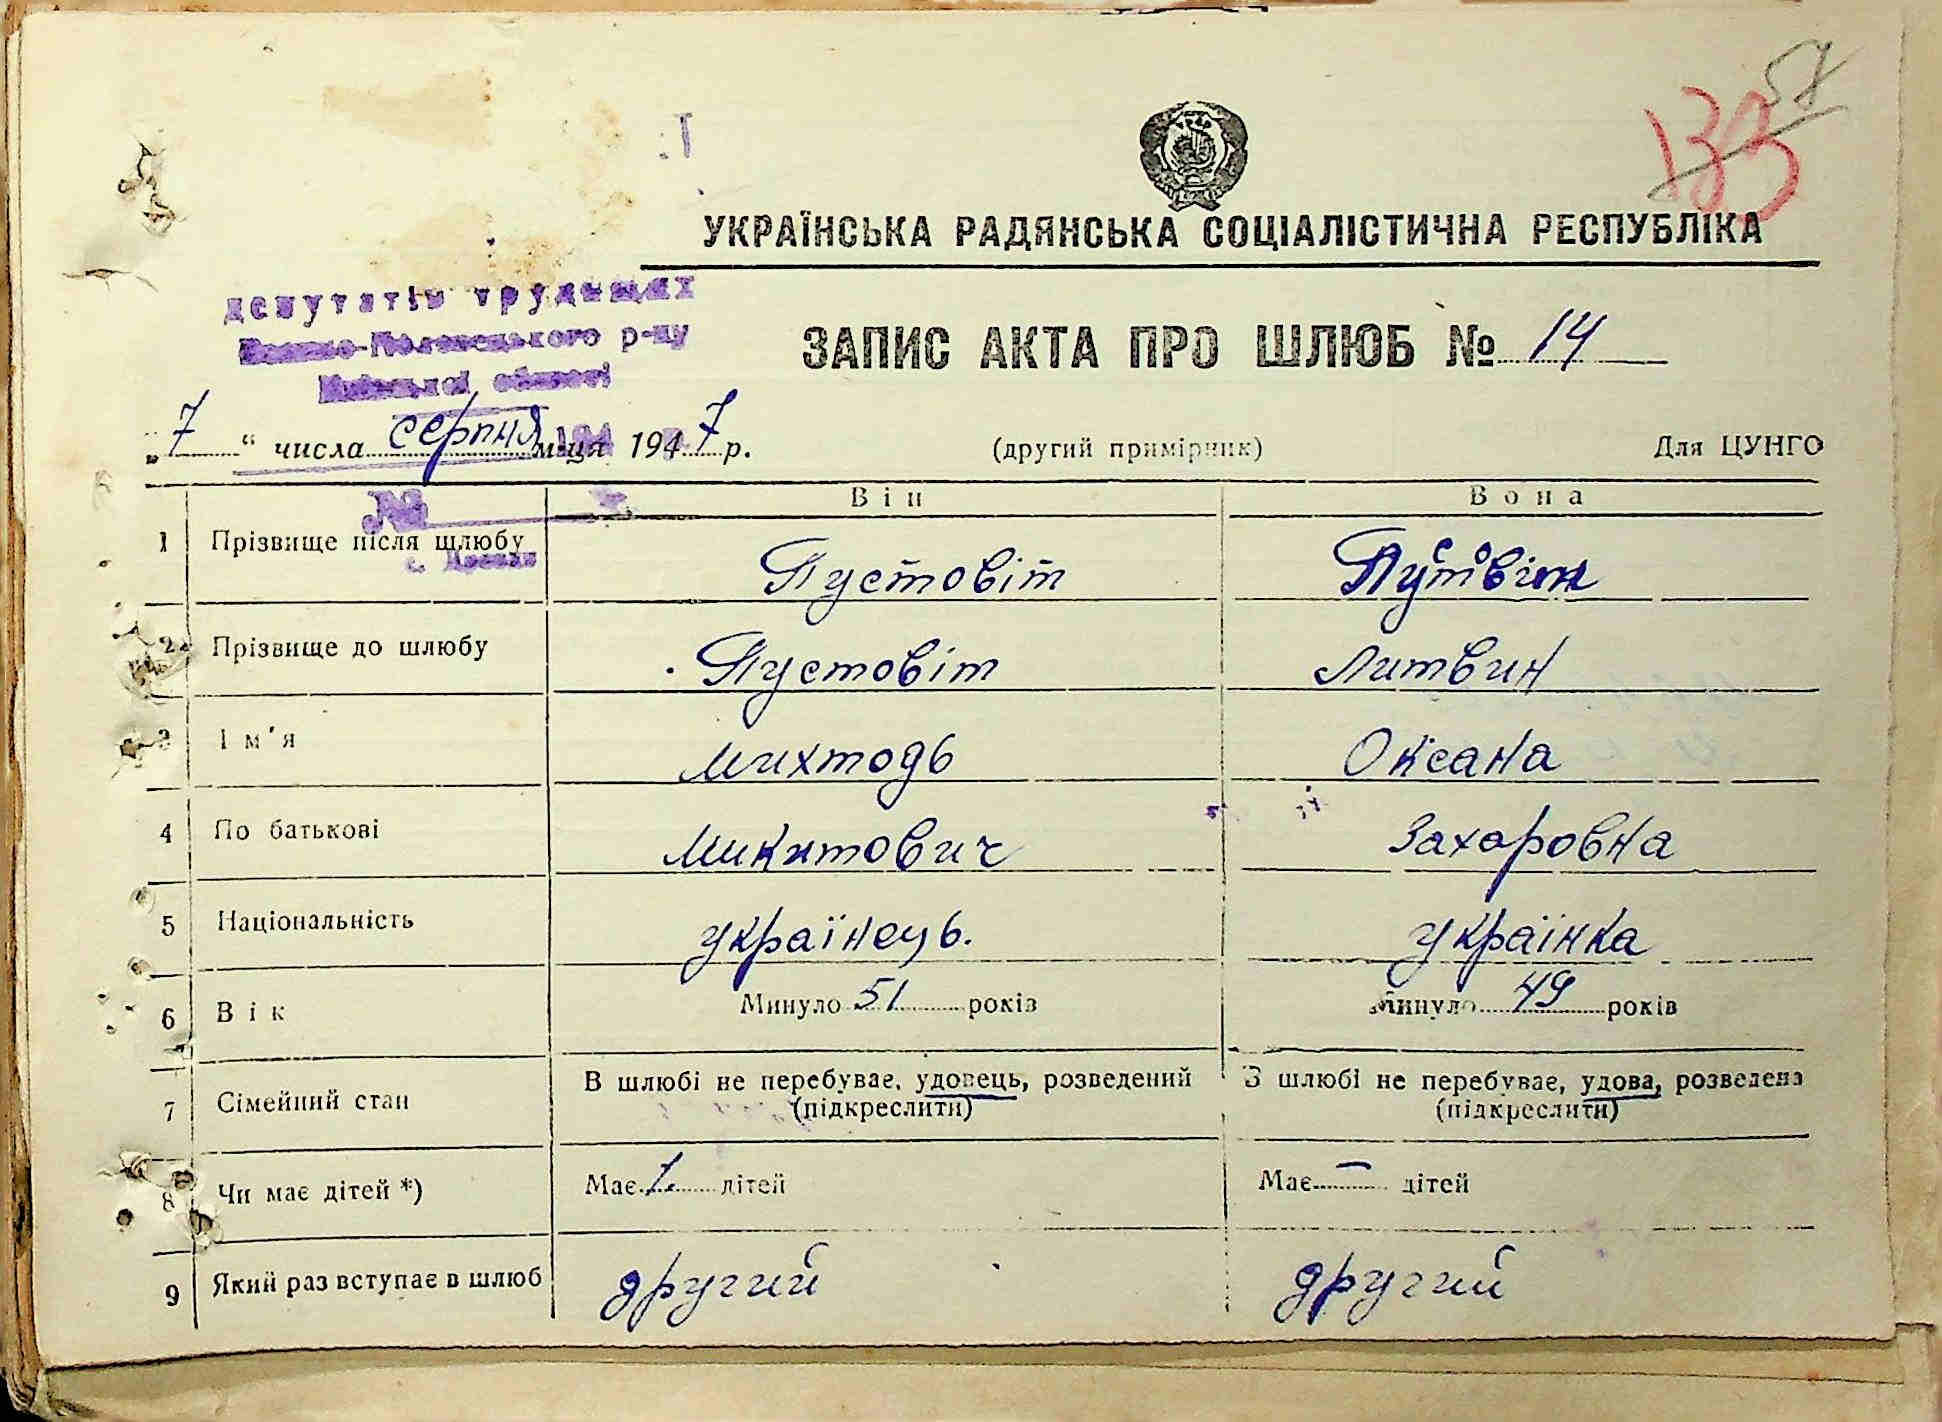 58
133
УКРАЇНСЬКА РАДЯНСЬКА СОЦІАЛІСТИЧНА РЕСПУБЛІКА
депутатів трудящих
р-ну
області
ЗАПИС АКТА ПРО ШЛЮБ № 14
„7“ числа серпня м-ця 1947 р. (другий примірник) Для ЦУНГО
№
с.
Він Вона
1 Прізвище після шлюбу Пустовіт Пустовіт
2 Прізвище до шлюбу Пустовіт Литвин
3 Ім'я Михтодь Оксана
4 По батькові Микитович Захаровна
5 Національність українець. українка
6 Вік Минуло 51 років Минуло 49 років
7 Сімейний стан В шлюбі не перебуває, удовець, розведений В шлюбі не перебуває, удова, розведена
(підкреслити) (підкреслити)
8 Чи має дітей *) Має 1 дітей Має — дітей
9 Який раз вступає в шлюб другий другий